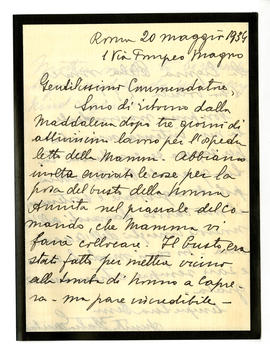 Roma 20 maggio 1934
1 Via Pompeo Magno
Gentilissimo Commendatore,
Sono di ritorno dalla
Maddalena dopo tre giorni di
attivissimo lavoro per l'ospeda
letto della Mamma. Abbiamo
inoltre avviato le cose per la
posa del busto della Nonna
Annita nel piazzale del Co-
mando, che Mamma vi
farà collocare. Il busto, era
stato fatto per metter vicino
alla tomba di Nonno a Capre-
ra - ma pare incredibile -